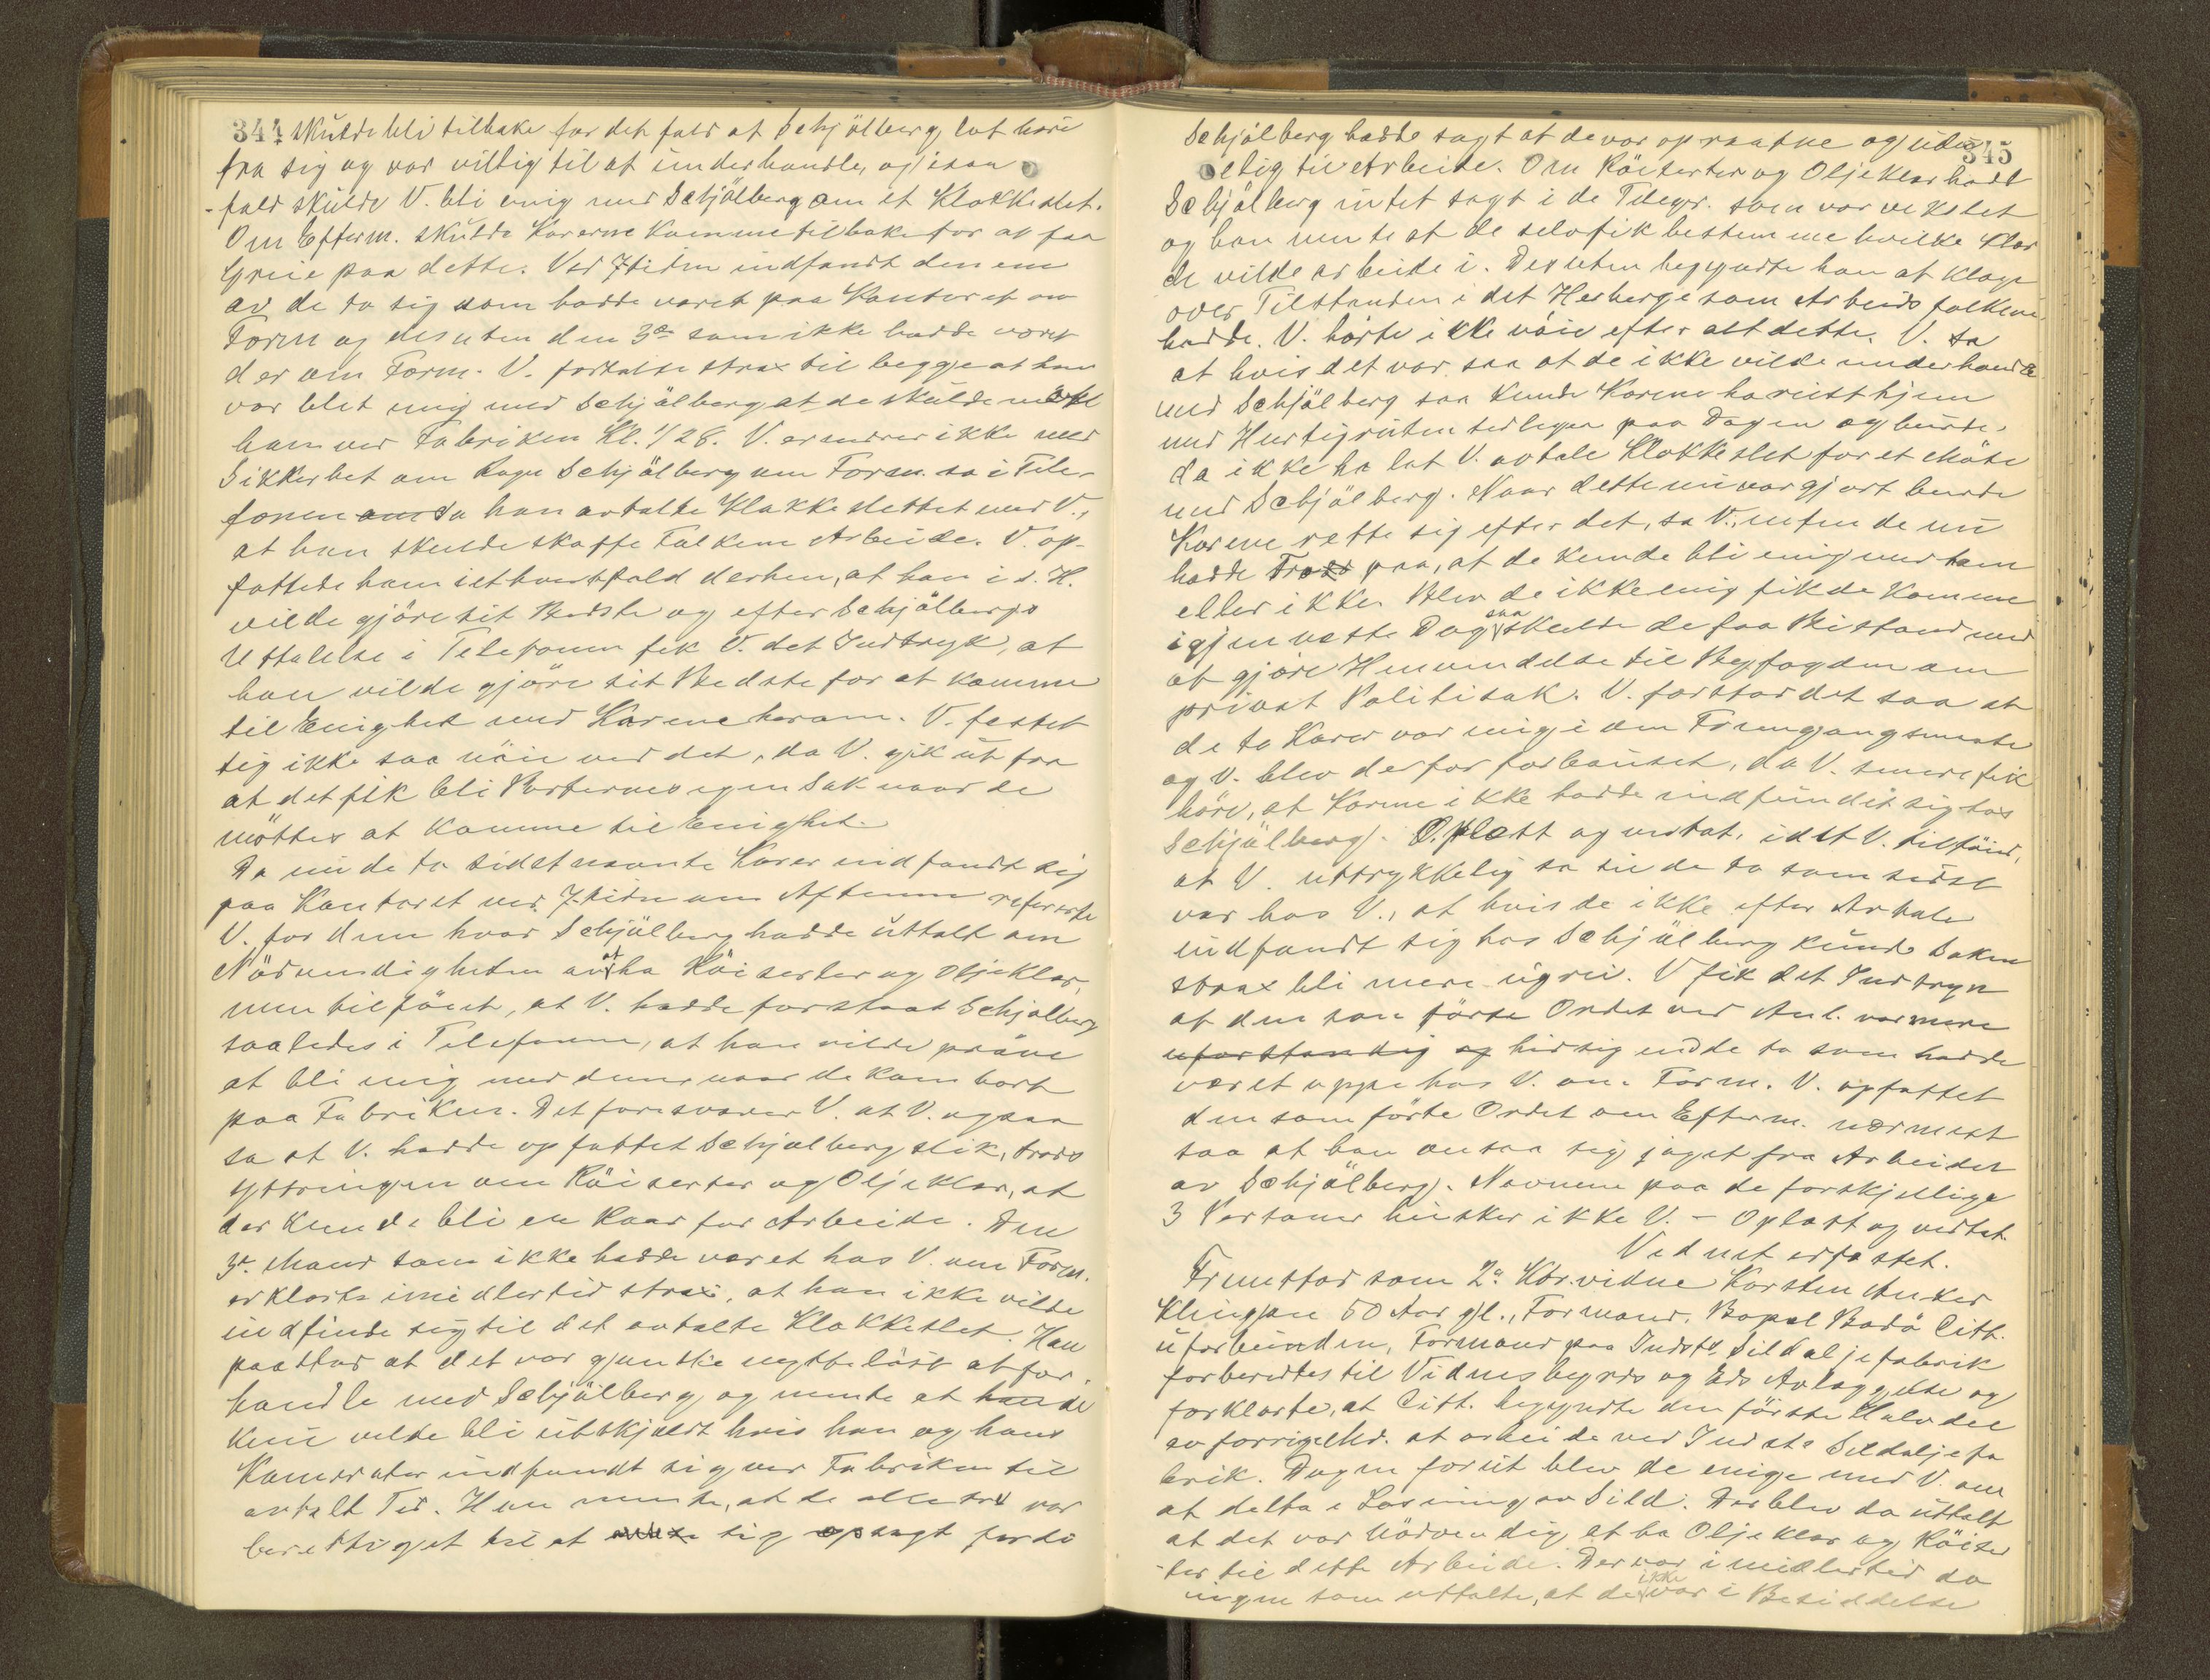 344 skulde bli tilbake for det fald at Schjölberg lot höre
fra sig og var villig til at underhandle, og i saa
fald skulde V. bli enig med Schjölberg om et Klokkeslet.
Om Efterm. skulde Karerne komme tilbake for at faa
Greie paa dette. Ved 7tiden indfandt den ene
av de to sig som hadde været paa Kontoret om
Form og desuten den 3die som ikke hadde været
der om Form. V. fortalte strax til begge at han
var blet enig med Schjölberg at de skulde møte
ham ved Fabriken Kl. 1/2 8. V. erindrer ikke med
Sikkerhet om Koge Schjölberg om Form. sa i Tele-
fonen da han avtalte Klokkeslettet med V.,
at han skulde skaffe Folkene Arbeide. V. op-
fattede ham ialtfald derhen, at han i s. H.
vilde gjöre sit Bedste og efter Schjölbergs
Uttalelse i Telefonen fik V. det Indtryk, at
han vilde gjöre sit Bedste for at komme
til Enighet med Karene herom. V. festet
sig ikke saa nöie ved det, da V. gik ut fra
at det fik bli Parternes egen Sak naar de
möttes at komme til Enighet.
Da nu de to sidstnævnte Karer indfandt sig
paa Kontoret ved 7-tiden om Aftenen refererte
V. for dem hvad Schjölberg hadde uttalt om
Nödvendigheten av at ha Röisertser og Oljeklær,
men tilföiet, at V. hadde forstaat Schjölberg
saaledes i Telefonen, at han vilde pröve
at bli enig med dem naar de kom bort
paa Fabriken. Det foresvæver V. at V. ogsaa
sa at V. hadde opfattet Schjölberg slik, trods
Yttringen om Röisertser og Oljeklær, at
der kunde bli en Raad for Arbeide. Den
3die Mand som ikke hadde været hos V. om Form.
erklærte imidlertid strax, at han ikke vilde
indfinde sig til det avtalte Klokkeslet. Han
paastod at det var ganske nytteløst at for-
handle med Schjölberg og mente at han de
kun vilde bli utskjældt hvis han og hans
Kamerater indfandt sig ved Fabriken til
avtalt Tid. Han mente, at de alle tre var
berettiget til at anse sig opsagt fordi
345
Schjölberg hadde sagt at de var opraatne og udu-
elig til Arbeide. Om Röisertser og Oljeklær hadde
Schjölberg intet sagt i de Telegr. som var vekslet
og han mente at de selv fik bestemme hvilke Klær
de vilde arbeide i. Desuten begyndte han at klage
over Tilstanden i det Herberge som Arbeidsfolkene
hadde. V. hörte ikke nöie efter alt dette. V. sa
at hvis det var saa at de ikke vilde underhandle
med Schjölberg saa kunde Karene ha reist hjem
med Hurtigruten tidligere paa Dagen og burde
da ikke ha lat V. avtale Klokkeslet for et Möte
med Schjölberg. Naar dette nu var gjort burde
Karene rette sig efter det, sa V., uten de nu
hadde Tro paa, at de kunde bli enig med ham
eller ikke. Blev de ikke enig fik de komme
igjen næste Dag saa skulde de faa Bistand med
at gjöre Henvendelse til Byfogden om
privat Politisak. V. forstod det saa at
de to Karer var enig i om Fremgangsmaate
og V. blev derfor forbauset, da V. senere fik
höre, at Karene ikke hadde indfundet sig hos
Schjölberg. Oplæst og vedtat, idet V. tilföier,
at V. uttrykkelig sa til de to som sidst
var hos V., at hvis de ikke efter Avtale
indfandt sig hos Schjölberg kunde Saken
strax bli mere ugrei. V fik det Indtryk
at den som förte Ordet ved Anl. var mere
uforstandig og hidsig end de to som hadde
været oppe hos V. om Form. V. opfattet
den som förte Ordet om Efterm. nærmest
saa at han ansaa sig jaget fra Arbeidet
av Schjölberg. Navnene paa de forskjellige
3 Personer husker ikke V. – Oplæst og vedtat.
Vidnet erfastet.
Fremstod som 2det Hov.vidne Karsten Anker
Klingen 50 Aar gl., Formand. Bopæl Bodö Citt.
uforbunden, Formand paa Indsta Sildoljefabrik
forberedtes til Vidnesbyrds og Eds Avlæggelse og
forklarte, at Citt. begyndte den förste Halvdel
av forrige Md. at arbeide ved Indsta Sildoljefa
brik. Dagen forut blev de enige med V. om
at delta i Losning av Sild. Der blev da uttalt
at det var Nödvendig at ha Oljeklær og Röiser-
ter til dette Arbeide. Der var imidlertid da
ingen som uttalte, at de ikke var i Besiddelse